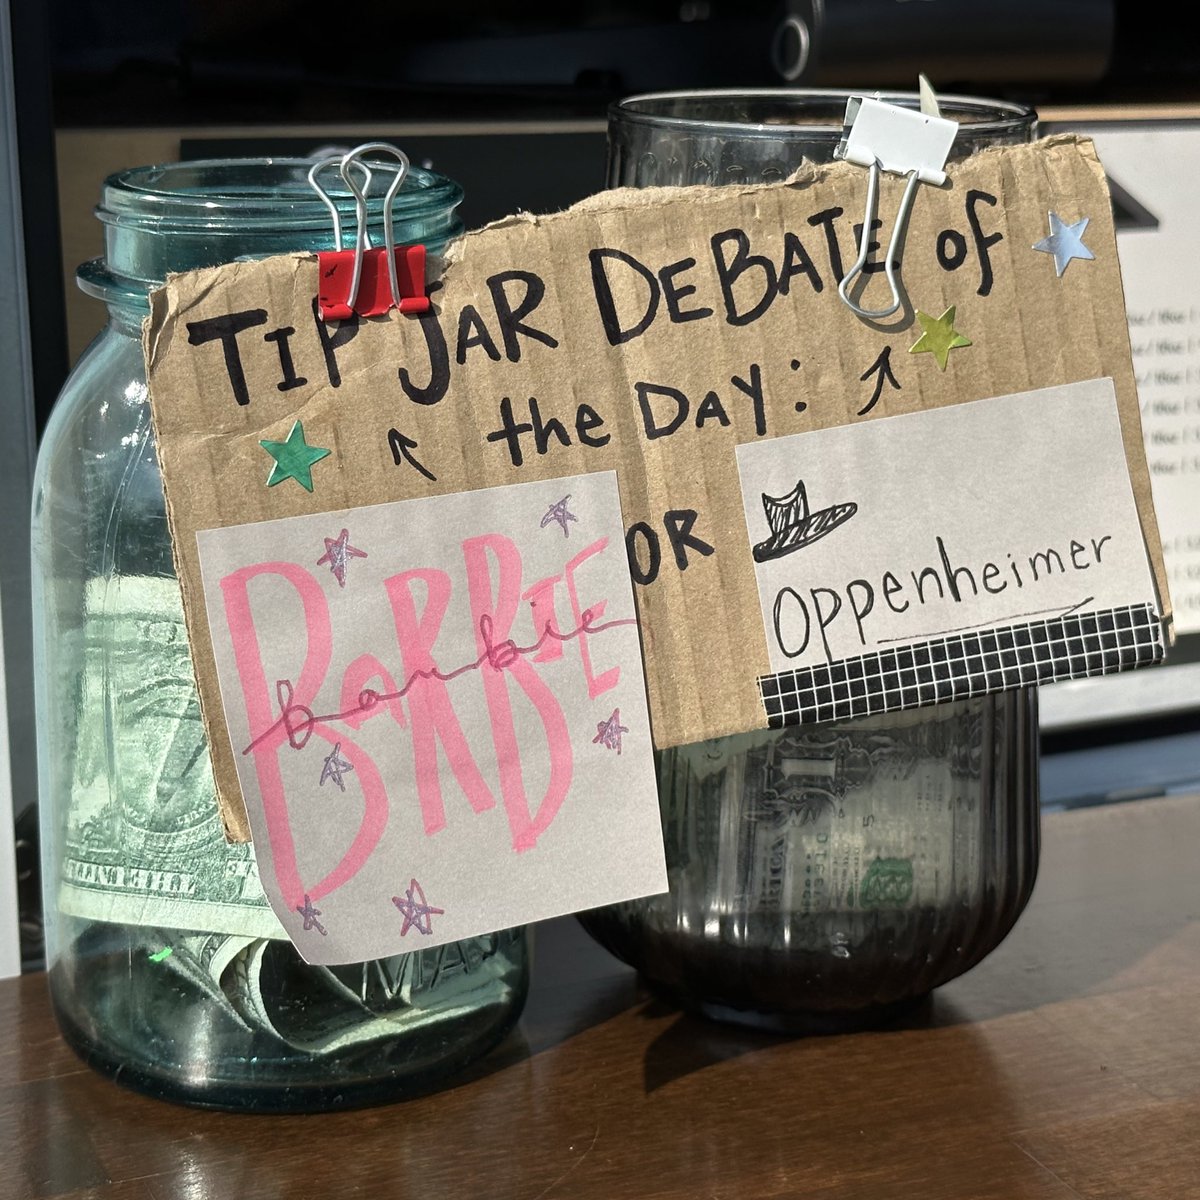 TIP JAR DEBATE of
the DAY:
BARBIE
barbie
OR
Oppenheimer